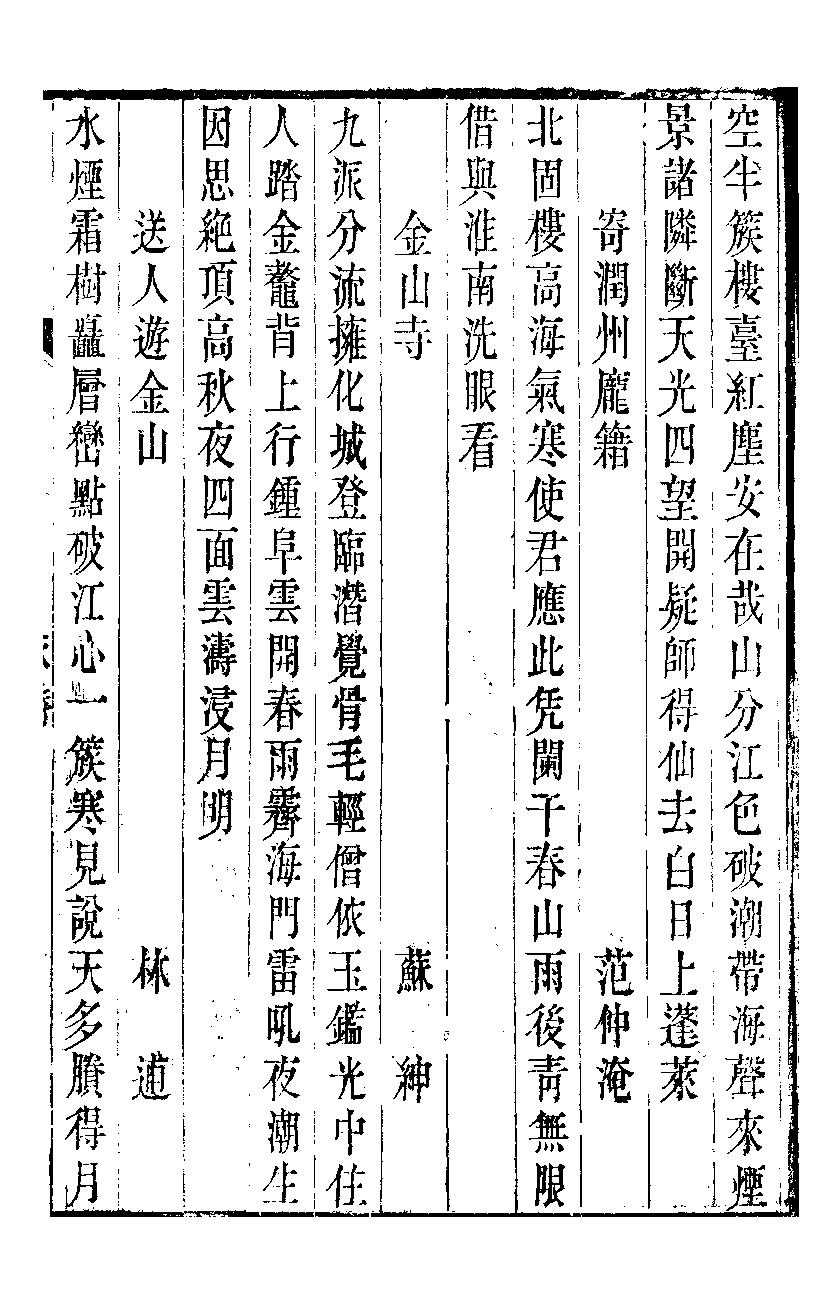 空半簇樓臺紅塵安在哉山分江色破潮帶海聲來煙
景諸隣斷天光四望開疑師得仙去白日上蓬萊
寄潤州龐籍　范仲淹
北固樓高海氣寒使君應此凭闌干春山雨後青無限
借與淮南洗眼看
金山寺　蘇紳
九派分流擁化城登臨潛覺骨毛輕僧依玉鑑光中住
人踏金鼇背上行鍾阜雲開春雨霽海門雷吼夜潮生
因思絶頂高秋夜四面雲濤浸月明
送人遊金山　林逋
水煙霜樹矗層巒點破江心一簇寒見說天多賸得月